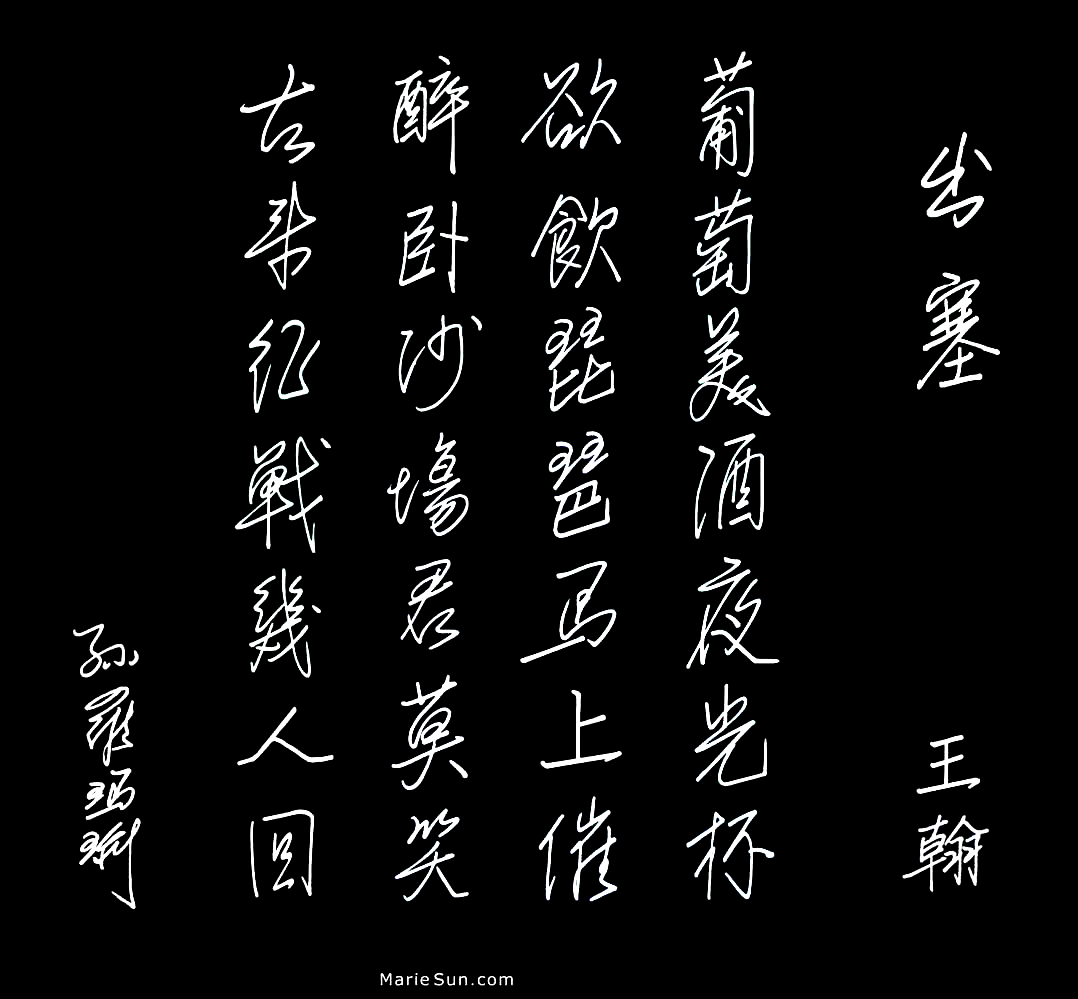 出塞
王翰
葡萄美酒夜光杯
欲飲琵琶馬上催
醉卧沙場君莫笑
古來征戰幾人回
孫羅瑪琍
MarieSun.com